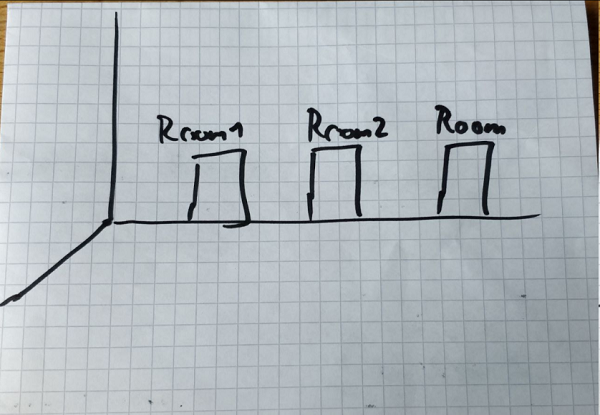 Rroom1 Rroom2 Room